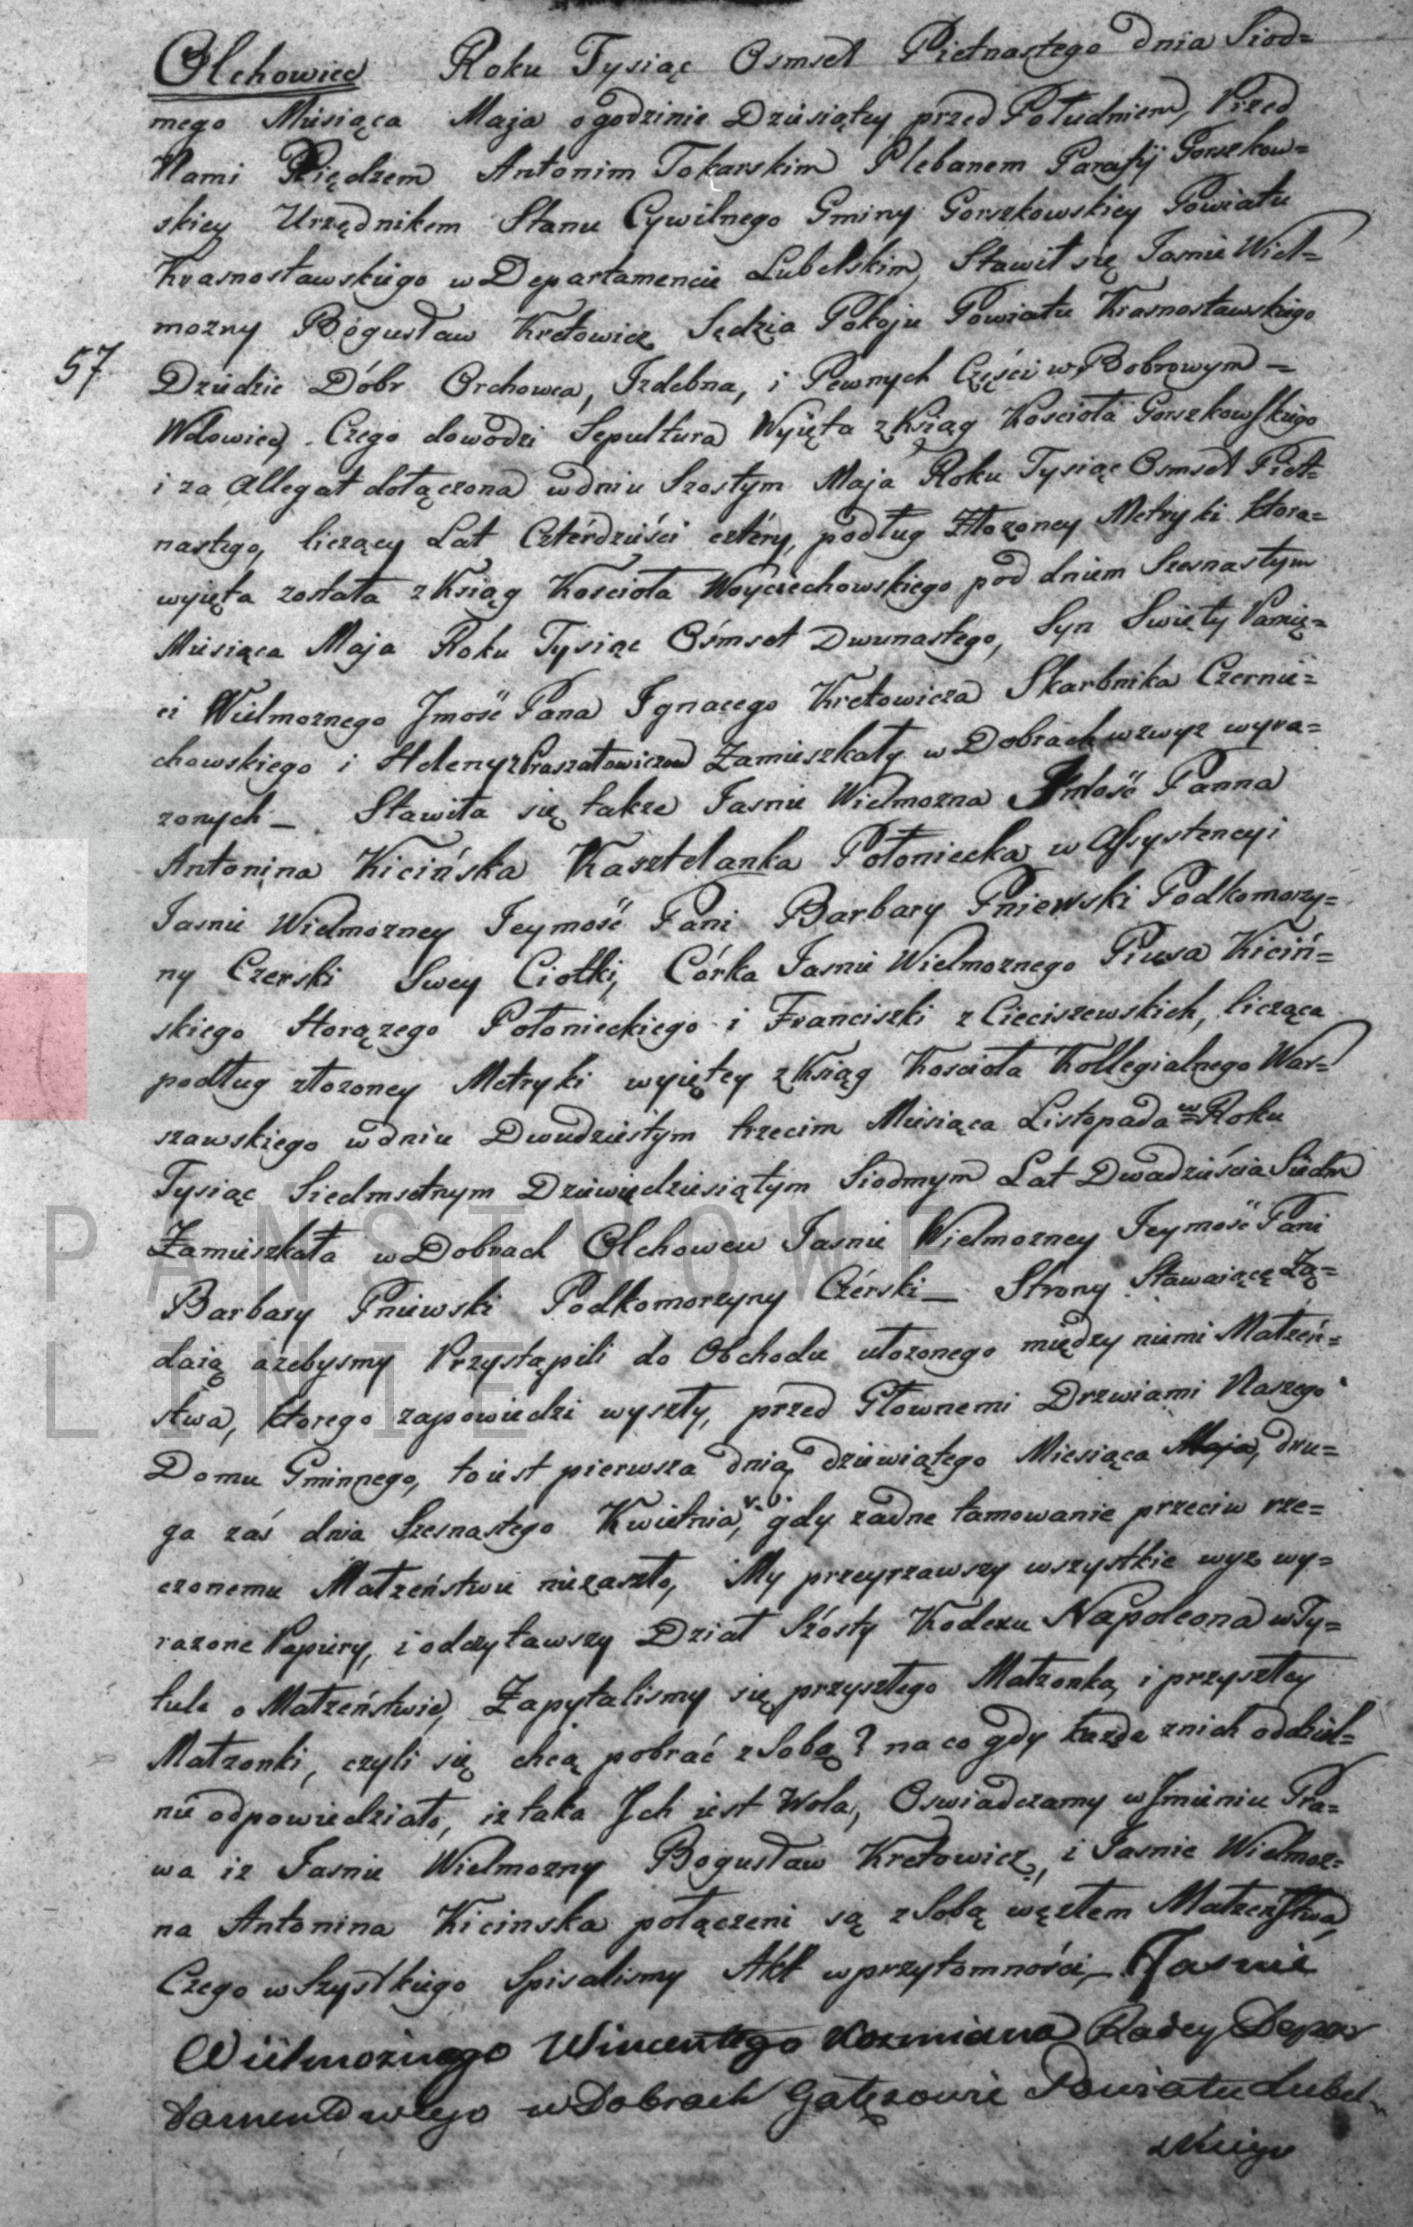 Olchowiec Roku Tysiąc Osmset Pietnastego dnia Siod=
mego Miesiąca Maja ogodzinie Dziesiątey przed Południem, Przed
Nami Xiędzem Antonim Tokarskim Plebanem Parafij Gorszkow=
skiey Urzędnikem Stanu Cywilnego Gminy Gorszkowskiey Powiatu
Krasnostawskiego w Departamencie Lubelskim, Stawił się Jasnie Wiel=
możny Bogusław Kretowicz Sędzia Pokoju Powiatu Krasnostawskiego
57 Dziedzic Dóbr Orchowca, Izdebna, i Pewnych Części w Bobrowym =
Wdowiec, Czego dowodzi Sepultura Wyięta z Ksiąg Kościoła Gorszkowskiego
i za Allegat dołączona w dniu Szostym Maja Roku Tysiąc Osmset Piet=
nastego, liczący Lat Czterdzieści cztery, podług Złozoney Metryki ktora=
wyięta została z Ksiąg Kościoła Woyciechowskiego pod dniem Szesnastym
Miesiąca Maja Roku Tysiąc Ośmset Dwunastego, Syn Swięty Pamię=
ci Wielmoznego Jmość Pana Ignacego Kretowicza Skarbnika Czernie=
chowskiego i Heleny z Zamieszkały w Dobrach wzwyz wyra=
zonych – Stawiła się takze Jasnie Wielmozna Jmość Panna
Antonina Kicińska Kasztelanka Połoniecka w Assystencyi
Jasnie Wielmozney Jeymość Pani Barbary Pniewski Podkomorzy=
ny Czerski Swey Ciotki, Córka Jasnie Wielmoznego Piusa Kiciń=
skiego Horązego Połonieckiego i Franciszki z Cieciszewskich, licząca
podług złozoney Metryki wyiętey z Ksiąg Kościoła Kollegialnego War=
szawskiego w dniu Dwudziestym trzecim Miesiąca Listopada w Roku
Tysiąc Siedmsetnym Dziewiędziesiątym Siodmym Lat Dwadzieścia Siedm
Zamieszkała w Dobrach Olchowcu Jasnie Wielmozney Jeymość Pani
Barbary Pniewski Podkomorzyny Czérski – Strony Stawaiące Zą=
daią azebysmy Przystąpili do Obchodu ułozonego między niemi Małzeń=
stwa, ktorego zapowiedzi wyszły, przed Głownemi Drzwiami Naszego
Domu Gminnego, to iest pierwsza dnia dziewiątego Miesiąca Maja, dru=
ga zaś dnia Szesnastego Kwietnia, gdy zadne tamowanie przeciw rze=
czonemu Małzeństwu niezaszło, My przeyrzawszy wszystkie wyz wy=
razone Papiery, i odczytawszy Dział Szósty Kodexu Napoleona w Ty=
tule o Małzeństwie, Zapytalismy się przyszłego Małzonka, i przyszłey
Małzonki, czyli się chcą pobrać z Sobą? na co gdy kazde znich oddziel=
nie odpowiedziało, iz taka Jch iest Wola, Oswiadczamy w Jmieniu Pra=
wa iz Jasnie Wielmozny Bogusław Kretowicz, i Jasnie Wielmoz=
na Antonina Kicinska połączeni są z Sobą węzłem Małzenstwa,
Czego wszystkiego Spisalismy Akt w przytomności – Jasnie
Wielmoznego Wincentego Kozmiana Radcy Depar
tamentowego w Dobrach Gałęzowie Powiatu Lubel=
skiego
PAŃSTWOWE
LINIE